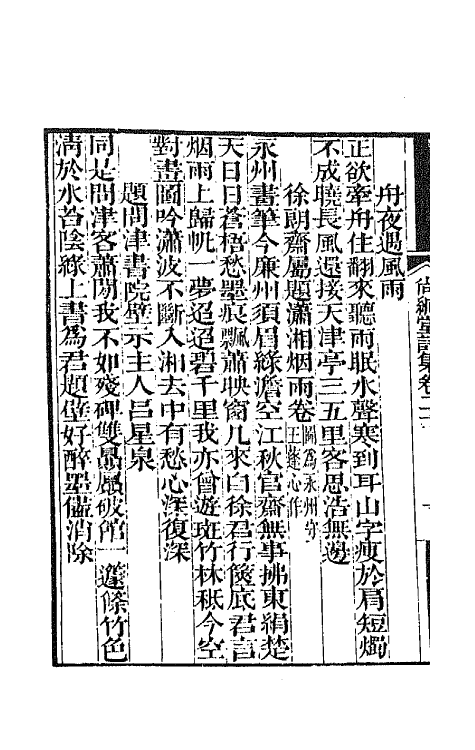 尚絅堂詩集卷二十
舟夜遇風雨
正欲牽舟住翻來聽雨眠水聲寒到耳山字瘦於肩短燭
不成曉長風還接天津亭三五里客思浩無邊
徐朗齋屬題瀟湘烟雨卷圖爲永州守王蓬心作
永州畫筆今廉州須眉綠澹空江秋官齋無事拂東絹楚
天日日蒼梧愁墨痕飄蕭映窗几來白徐君行篋底君言
烟雨上歸帆一夢迢迢碧千里我亦曾遊斑竹林秖今空
對畫圖吟瀟波不斷入湘去中有愁心深復深
題問津書院壁示主人呂星泉
同是問津客蕭閒我不如殘碑雙贔屭破館一籧篨竹色
淸於水苔陰綠上書爲君題壁好醉墨儘消除